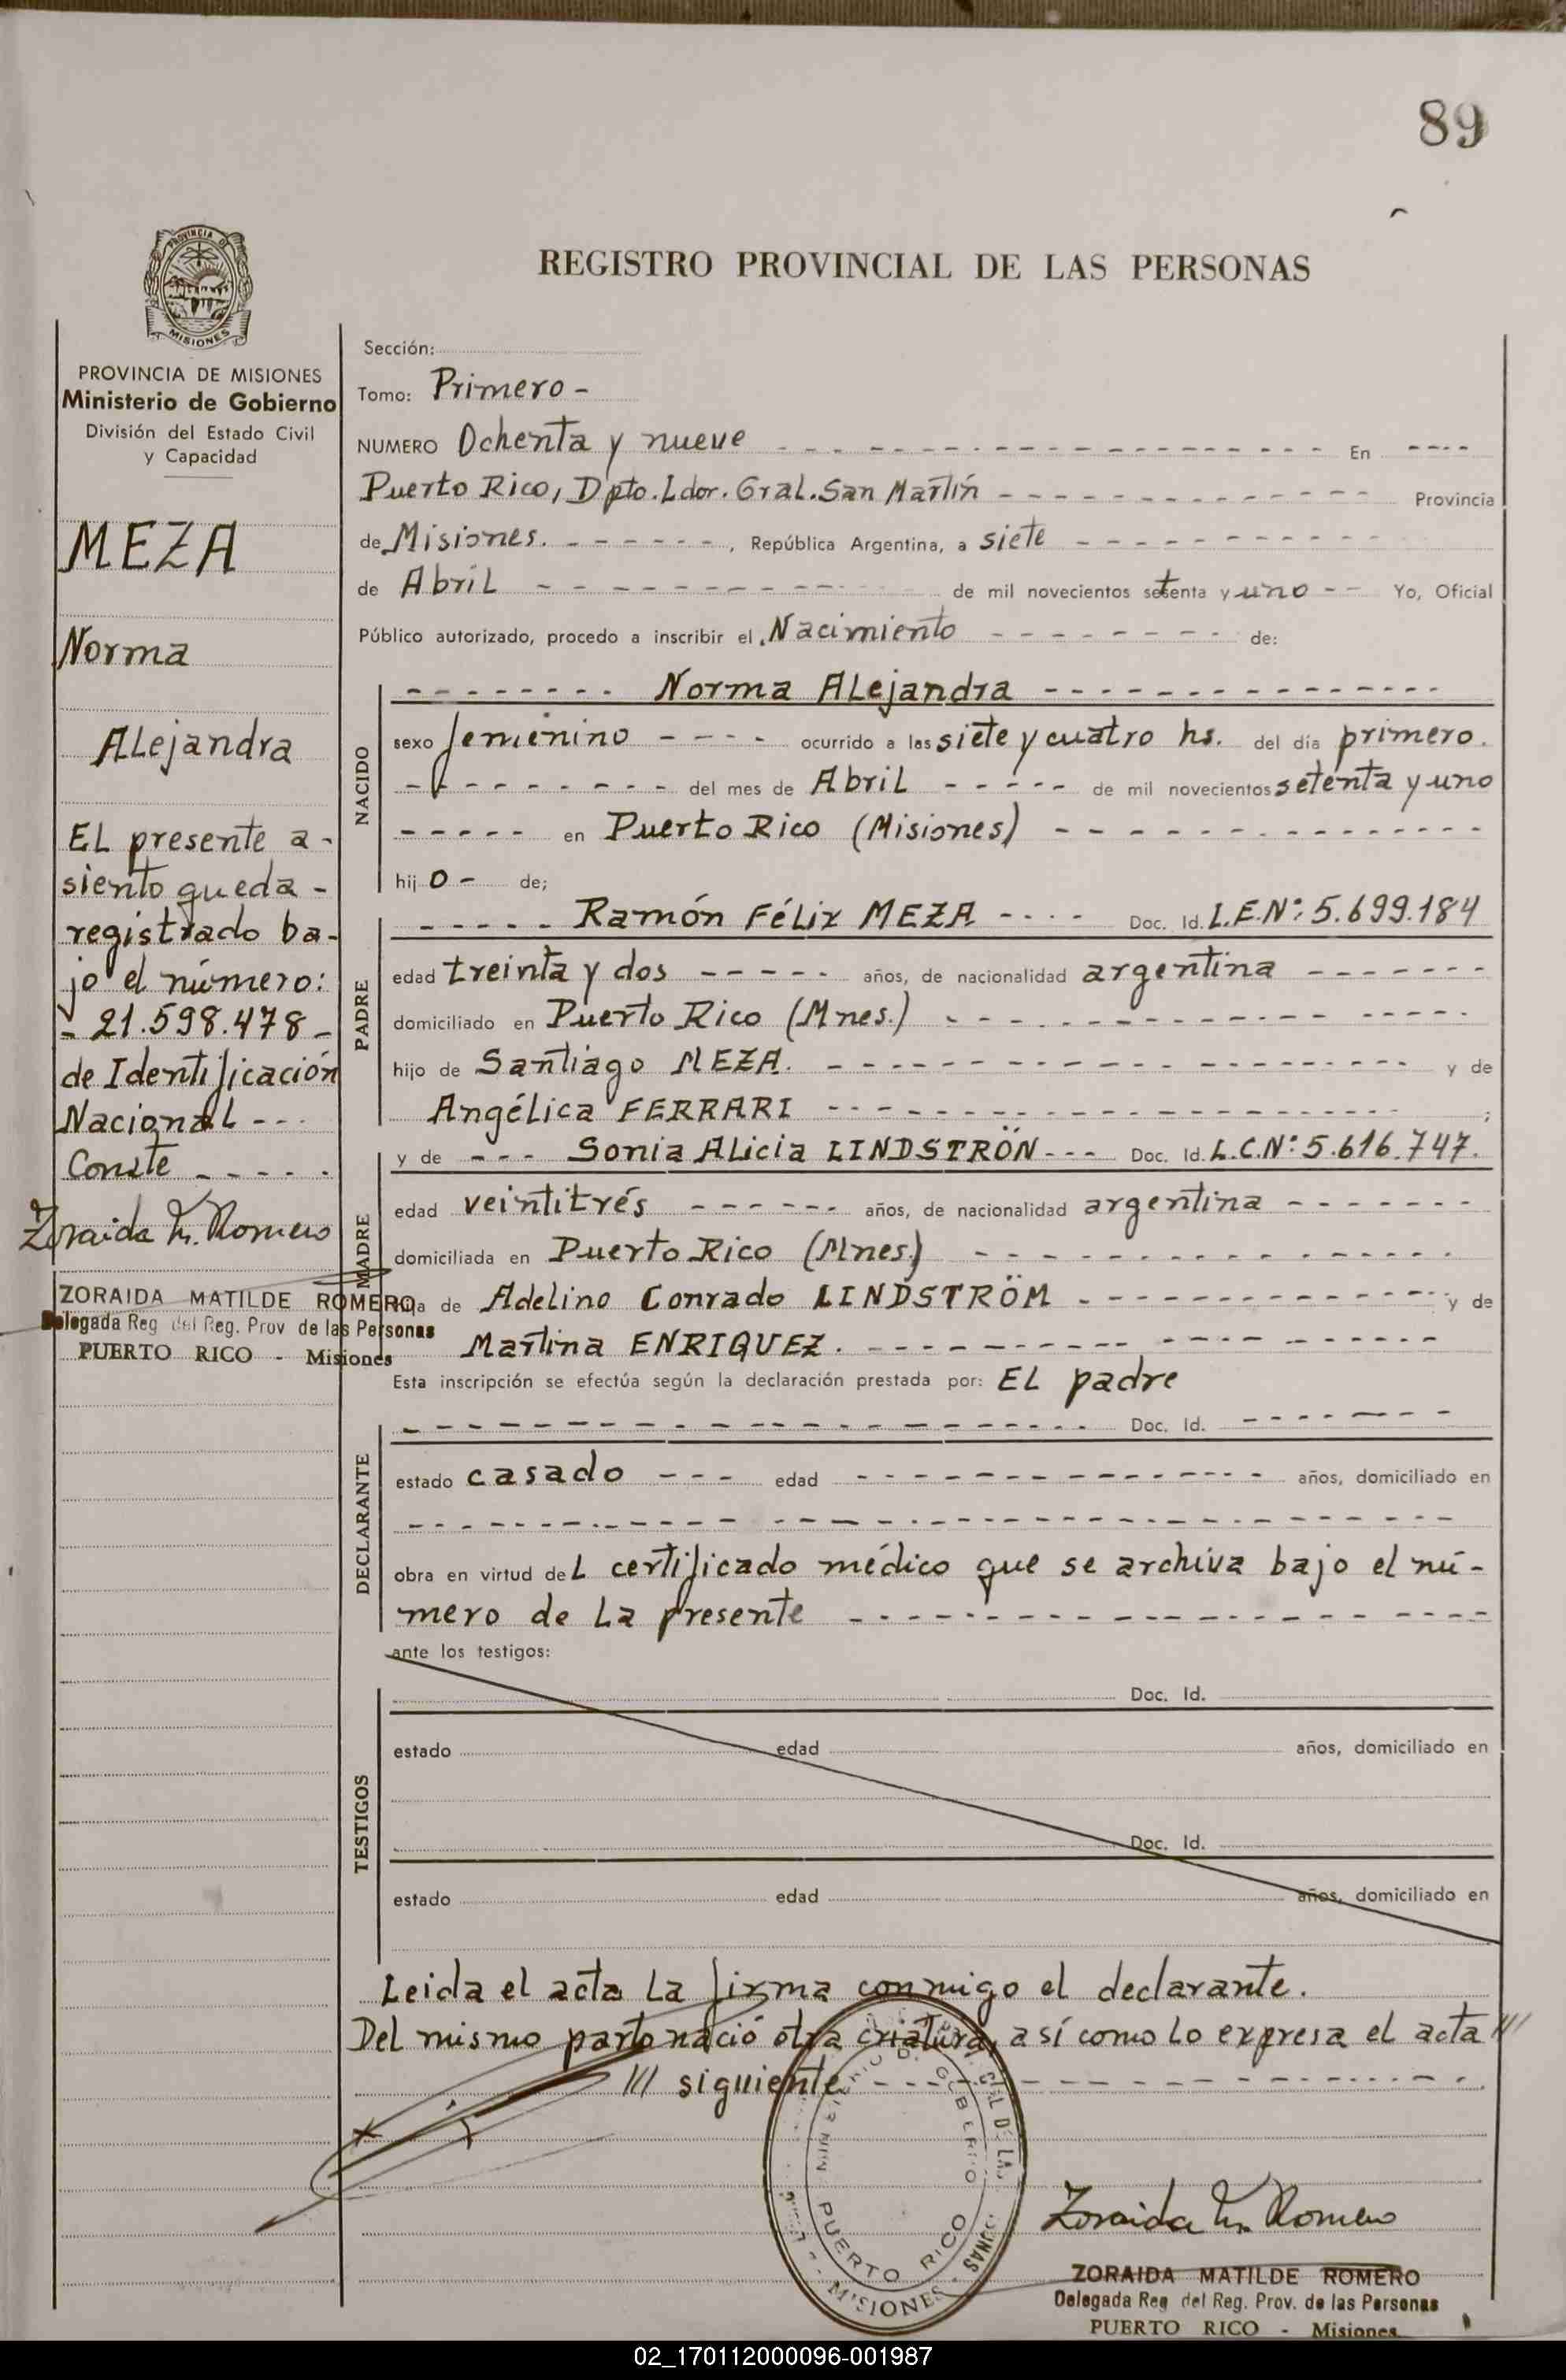 89
PROVINCIA DE
MISIONES
REGISTRO PROVINCIAL DE LAS PERSONAS
PROVINCIA DE MISIONES
Ministerio de Gobierno
División del Estado Civil
y Capacidad
MEZA
Norma
ALejandra
EL presente a-
siento queda-
registrado ba-
jo el número:
- 21.598.478 -
de Identificación
NacionaL ---
Conste - - - - -
Zoraida M. Romero
ZORAIDA MATILDE ROMERO
Delegada Reg del Reg. Prov de las Personas
PUERTO RICO - Misiones
Sección:
Tomo: Primero -
NUMERO Ochenta y nueve - - - - En ----
Puerto Rico, Dpto. Ldor. Gral. San Martín - - - - Provincia
de Misiones. - - - -, República Argentina, a siete - - - -
de AbriL - - - - de mil novecientos setenta y uno -- Yo, Oficial
Público autorizado, procedo a inscribir el Nacimiento - - - - de:
NACIDO
- - - - Norma ALejandra - - - -
sexo femenino - - - - ocurrido a las siete y cuatro hs. del día primero.
- - - - del mes de AbriL - - - - de mil novecientos setenta y uno
- - - - en Puerto Rico (Misiones) - - - -
hij o - de;
PADRE
- - - - Ramón Félix MEZA - - - - Doc. Id. L.E.Nº: 5.699.184
edad treinta y dos - - - - años, de nacionalidad argentina - - - -
domiciliado en Puerto Rico (Mnes.) - - - -
hijo de Santiago MEZA. - - - - y de
Angélica FERRARI - - - - ;
MADRE
y de --- Sonia ALicia LINDSTRÖN --- Doc. Id. L.C.Nº: 5.616.747.
edad veintitrés - - - - años, de nacionalidad argentina - - - -
domiciliada en Puerto Rico (Mnes.) - - - -
hija de Adelino Conrado LINDSTRÖM - - - - y de
Martina ENRIQUEZ. - - - -
Esta inscripción se efectúa según la declaración prestada por: EL padre
DECLARANTE
- - - - Doc. Id. - - - -
estado casado --- edad - - - - años, domiciliado en
- - - -
obra en virtud de L certificado médico que se archiva bajo el nú-
mero de La presente - - - -
ante los testigos:
TESTIGOS
Doc. Id.
estado edad años, domiciliado en
Doc. Id.
estado edad años, domiciliado en
Leida el acta La firma conmigo el declarante.
Del mismo parto nació otra criatura, así como Lo expresa el acta ///
/// siguiente - - - -
PUERTO RICO
MISIONES
Zoraida M. Romero
ZORAIDA MATILDE ROMERO
Delegada Reg del Reg. Prov. de las Personas
PUERTO RICO - Misiones
02_170112000096-001987